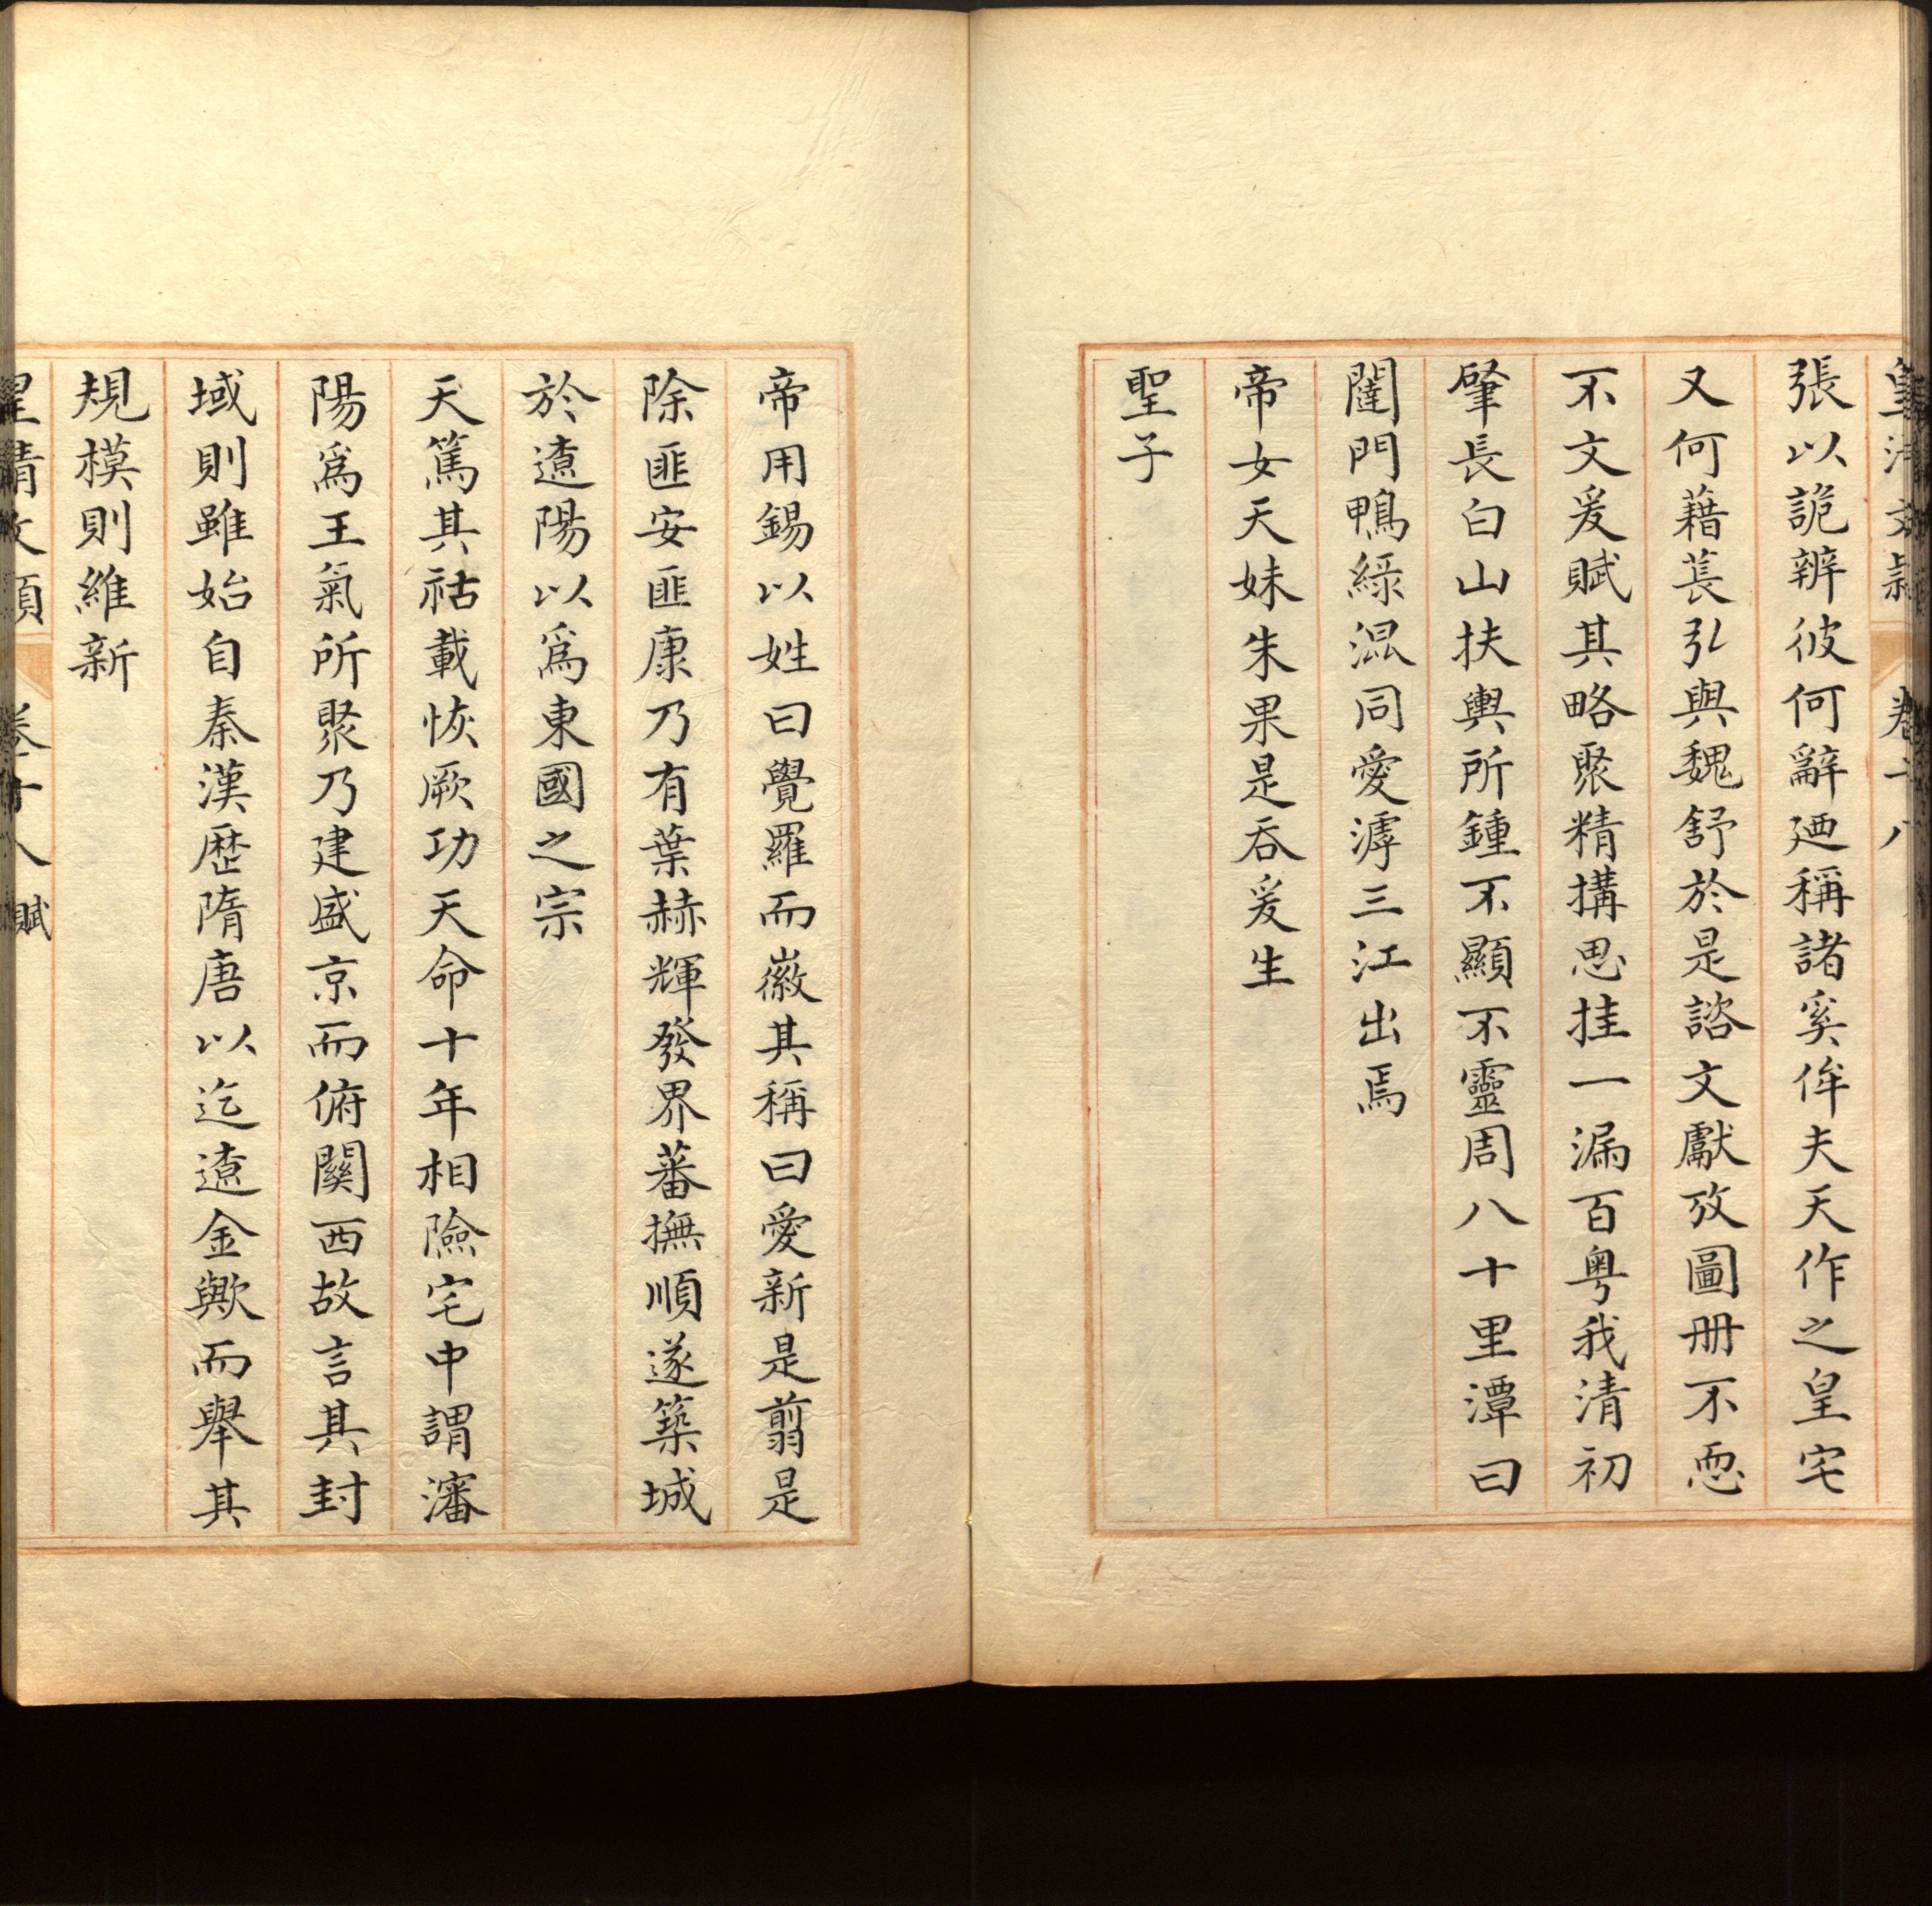 張以詭辨彼何辭廼稱諸奚侔夫天作之皇宅
又何藉萇弘與魏舒於是諮文獻攷圖冊不恧
不文爰賦其略聚精搆思挂一漏百粤我清初
肇長白山扶輿所鍾不顯不靈周八十里潭曰
闥門鴨綠混同愛滹三江出焉
帝女天妹朱果是吞爰生
聖子
帝用錫以姓曰覺羅而徽其稱曰愛新是翦是
除匪安匪康乃有葉赫輝發界蕃撫順遂築城
於遼陽以為東國之宗
天篤其祜載恢厥功天命十年相險宅中謂瀋
陽為王氣所聚乃建盛京而俯關西故言其封
域則雖始自秦漢歷隋唐以迄遼金歟而舉其
規模則維新
皇清文穎 卷十八 賦